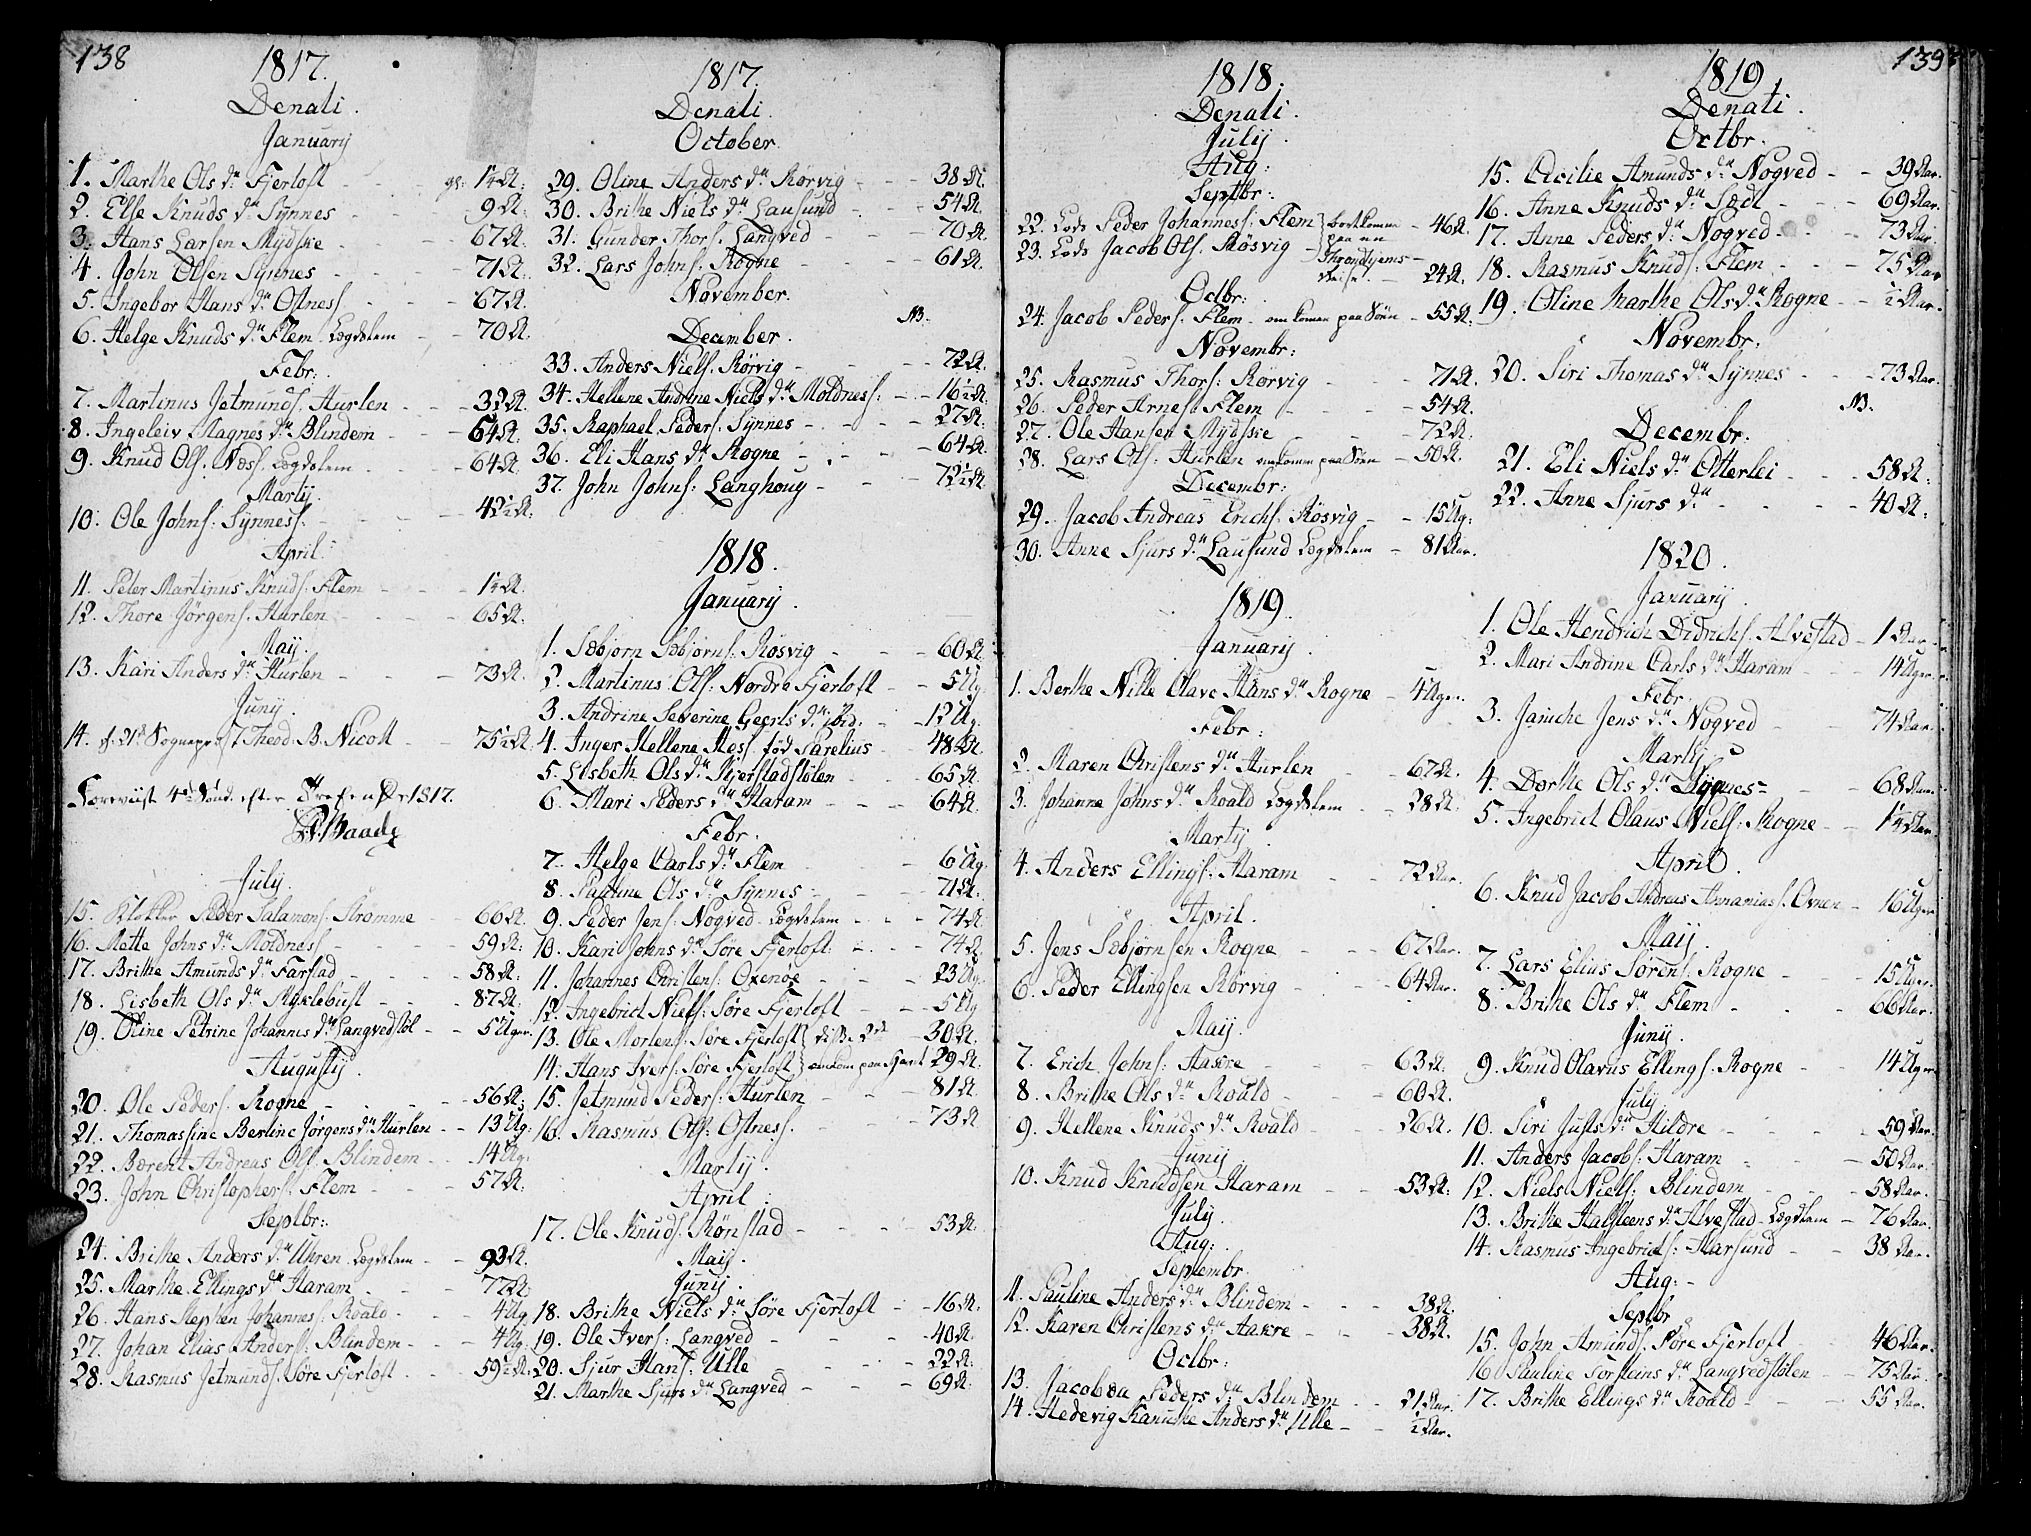 138
1817.
Denati.
January
1. Marthe Ols dr Fjertoft - - - gl: 1/4 Al:
2. Else Knuds dr Synnes - - - 9 Al:
3. Hans Larsen Mydske - - 67 Al.
4. John Olsen Synnes - - - 71 Al:
5. Ingebor Hans dr Ostness - - 67 Al:
6. Helge Knuds dr Flem Lægdslem - - 70 Al.
Febr:
7. Martinus Jetmunds. Hurlen - - 32 Al.
8. Ingeleiv Magnes dr Blindem - - 64 Al:
9. Knud Ols. Næss. Lægdslem - - 64 Al:
Martij.
10. Ole Johns: Synness: - - - 42 1/2 Al:
April:
11. Peter Martinus Knuds: Flem - - 1/4 Al:
12. Thore Jørgens. Hurlen - - - 65 Al:
Maij.
13. Kari Anders dr Hurlen - - - 73 Al.
Junij.
14. d. 21de Sognepræst Theod. B. Nicoll - - 75 1/2 Al.
Foreviist 4de Sønd. efter 1817.
July.
15. Klokker Peder Salamons. Strømme - - 66 Al.
16. Mette Johns dr Moldness - - - 59 Al:
17. Brithe Amunds dr Farstad - - - 58 Al:
18. Lisbeth Ols dr Myklebust - - - 87 Al:
19. Oline Petrine Johannes dr Langvedstøl - - 5 Uger.
Augustij.
20. Ole Peders. Rogne - - - 56 Al:
21. Thomassine Berline Jørgens dr Hurlen - - 13 Ug:
22. Bærent Andreas Ols. Blindem - - 14 Ug.
23. John Christophers. Flem - - - 57 Al.
Septbr:
24. Brithe Anders dr Uhren Lægdslem - - 93 Al.
25. Marthe Ellings dr Haram - - - 77 Al
26. Hans Stephen Johannes. Roald - - 4 Ug.
27. Johan Elias Anders: Blindem - - 4 Ug.
28. Rasmus Jetmunds. Søre Fjertoft. - - 59 1/2 Al:
1817.
Denati.
October.
29. Oline Anders dr Rørvig - - - 38 Al.
30. Brithe Niels dr Lausund - - 54 Al.
31. Gunder Thors. Langved - - - 70 Al.
32. Lars Johns: Rogne - - - 61 Al.
November.
NB.
December.
33. Anders Niels. Rørvig - - - 72 Al.
34. Hellene Andrine Niels dr Moldness: - - 16 1/2 Al.
35. Raphael Peders. Synnes - - - 27 Al.
36. Eli Hans dr Rogne - - - 64 Al:
37. John Johns: Langhoug - - - 72 1/2 Al.
1818.
January.
1. Sæbjorn Sæbjørns: Røsvig - - - 60 Al.
2. Martinus Ols: Nordre Fjertoft - - 5 Ug
3. Andrine Severine Geerts dr ibid: - - 12 Ug.
4. Inger Hellene Hes. fød Parelius - - 48 Al.
5. Lisbeth Ols dr Kjerstadstølen - - 65 Al.
6. Mari Peders dr Haram - - - 64 Al:
Febr.
7. Helge Carls dr Flem - - 6 Ug.
8. Pauline Ols dr Synnes - - - 71 Al:
9. Peder Jens. Nogved Lægdslem - - - 74 Al.
10. Kari Johns dr Søre Fjertoft: - - - 74 Al.
11. Johannes Christens: Oxenøe - - - 23 Ug.
12. Ingebrict Niels: Søre Fjertoft - - 5 Ug
13. Ole Mortens: Søre Fjertoft } disse 2de 30 Al.
14. Hans Ivers. Søre Fjertoft } omkom paa Hjavet 29 Al.
15. Jetmund Peders: Hurlen - - - 81 Al.
16. Rasmus Ols: Ostness. - - - 73 Al
Martij.
April:
17. Ole Knuds. Rønstad - - - 53 Al.
Maij.
Junij.
18. Brithe Niels dr Søre Fjertoft - - 16 Al.
19. Ole Ivers: Langved - - - 40 Al.
20. Sjur Hans: Ulle - - - 22 Al:
21. Marthe Sjurs dr Langved - - - 69 Al.
1818.
Denati.
July.
Aug:
Septbr:
22. Lods Peder Johanness: Flem } bortkomne - 46 Al.
paa en
23. Lods Jacob Ols. Røsvig - } Throndhjems
Reise. - 24 Al.
Octbr:
24. Jacob Peders. Flem - omkomen paa Søen - 55 Al.
Novembr:
25. Rasmus Thors: Rørvig - - - 71 Al.
26. Peder Arnes. Flem - - - 54 Al.
27. Ole Hansen Mydske - - - 72 Al:
28. Lars Ols: Hurlen omkomm paa Søen - 50 Al.
Decembr:
29. Jacob Andreas Erichs. Røsvig - - 15 Ug:
30. Anne Sjurs dr Lausund Lægdslem - 81 Aar.
1819.
January.
1. Berthe Nille Olave Hans dr Rogne - 4 Uger.
Febr:
2. Maren Christens dr Hurlen - - 67 Al.
3. Johanne Johns dr Roald Lægdslem - - 28 Al:
Martij.
4. Anders Ellings: Haram - - - 72 Aar.
April.
5. Jens Sæbjørnsen Rogne - - - 67 Aar.
6. Peder Ellingsen Rørvig - - - 64 Aar.
Maij.
7. Erich Johns: Hakre - - - 63 Al
8. Brithe Ols dr Roald - - - 60 Al.
9. Hellene Knuds dr Roald - - - 26 Al.
Junij.
10. Knud Knudsen Haram - - - 53 Al:
July.
Aug:
Septembr.
11. Pauline Anders dr Blindem - - - 38 Al.
12. Karen Christens dr Hakre - - - 38 Al.
Octbr:
13. Jacobea Peders dr Blindem - - 21 Aar.
14. Hedevig Kanutte Anders dr Ulle - - 1/2 Aar.
139
1819.
Denati.
Octbr.
15. Cicilie Amunds dr Nogved - - 39 Aar.
16. Anne Knuds dr Sætt - - - 69 Aar.
17. Anne Peders dr Nogved - - - 73 Aar.
18. Rasmus Knuds: Flem - - - 75 Aar
19. Oline Marthe Ols dr Rogne - - 1/2 Aar.
Novembr.
20. Siri Thomas dr Synnes - - - 73 Aar.
NB.
Decembr.
21. Eli Niels dr Otterlei - - - 58 Al:
22. Anne Sjurs dr - - - 40 Al:
1820.
January.
1. Ole Hendrich Didrichs. Alvestad - 1 Aar.
2. Mari Andrine Carls dr Haram - - - 14 Uger.
Febr.
3. Janiche Jens dr Nogved - - - 74 Aar.
Martij
4. Dorthe Ols dr Synnes - - - 68 Aar.
5. Ingebrict Olaus Niels: Rogne - - 1/4 Aar.
April.
6. Knud Jacob Andreas Annanias. Ovnen - 16 Uger
Maij.
7. Lars Elius Sørens. Rogne - - - 15 Uger.
8. Brithe Ols dr Flem - - - 66 Aar.
Junij.
9. Knud Olavus Ellings. Rogne - - 14 Uger
July.
10. Siri Justs dr Hildre - - - 59 Aar.
11. Anders Jacobs: Haram - - - 50 Aar.
12. Niels Niels: Blindem - - - 58 Aar.
13. Brithe Halsteens dr Alvestad - Lægdslem - 76 Aar.
14. Rasmus Ingebricts: Harsund - - 38 Aar.
Aug: -
Septbr
15. John Amunds. Søre Fjertoft - - 46 Aar.
16 Pauline Torsteins dr Langvedstølen - - 75 Aar.
17. Brithe Ellings dr Roald - - - 55 Aar.